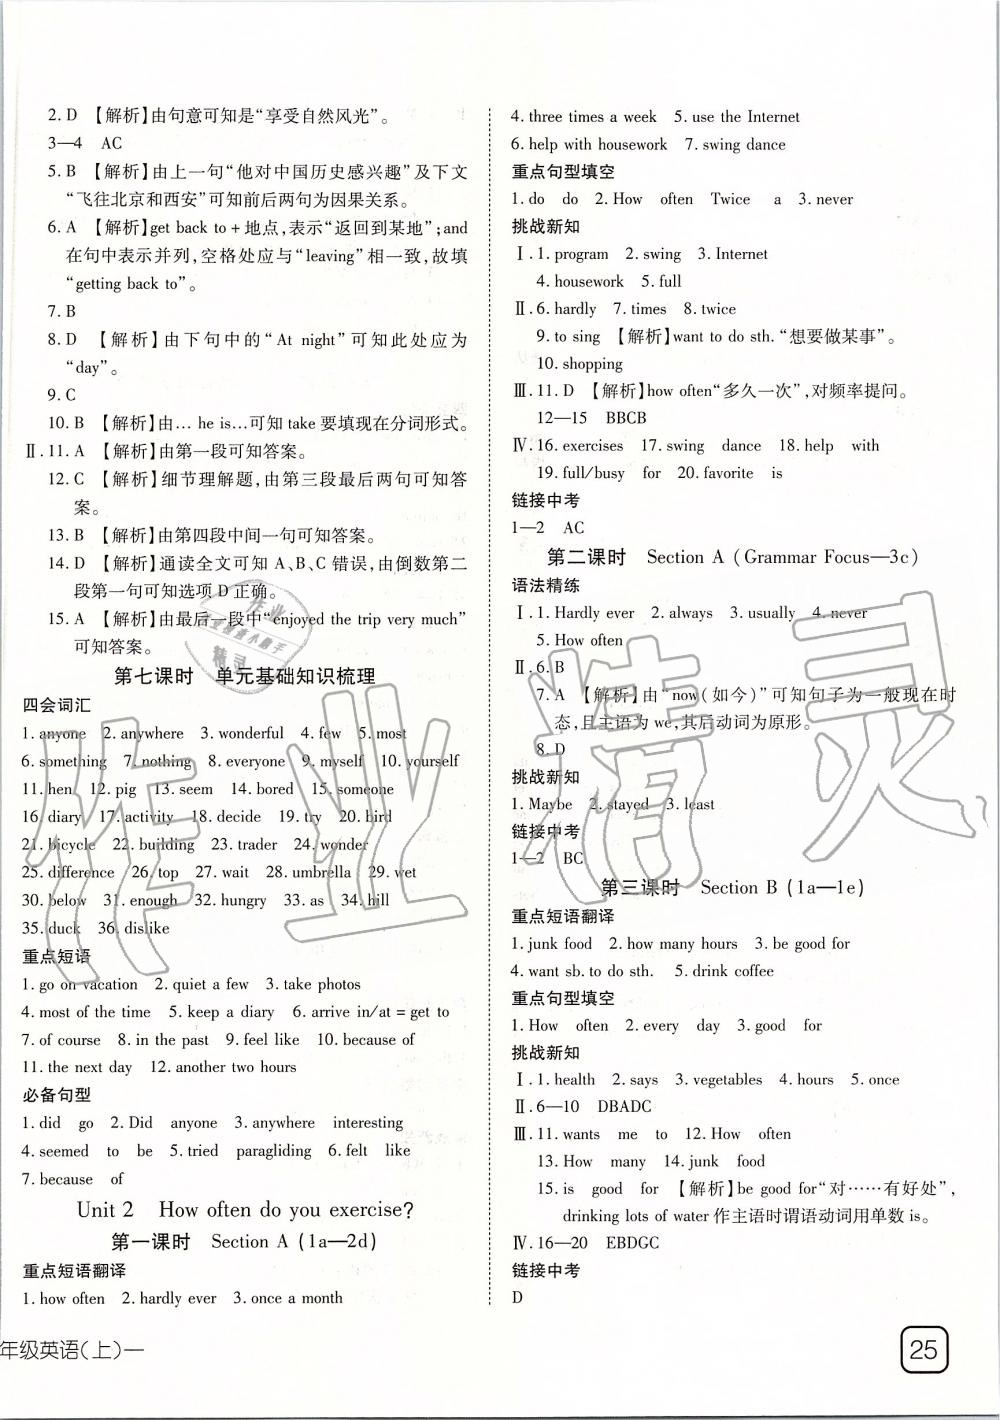 2. D 【解析】由句意可知是“享受自然风光”。
3—4 AC
5. B 【解析】由上一句“他对中国历史感兴趣”及下文
“飞往北京和西安”可知前后两句为因果关系。
6. A 【解析】get back to + 地点,表示“返回到某地”;and
在句中表示并列,空格处应与“leaving”相一致,故填
“getting back to”。
7. B
8. D 【解析】由下句中的“At night”可知此处应为
“day”。
9. C
10. B 【解析】由… he is…可知 take 要填现在分词形式。
Ⅱ. 11. A 【解析】由第一段可知答案。
12. C 【解析】细节理解题,由第三段最后两句可知答
案。
13. B 【解析】由第四段中间一句可知答案。
14. D 【解析】通读全文可知 A、B、C 错误,由倒数第二
段第一句可知选项 D 正确。
15. A 【解析】由最后一段中“enjoyed the trip very much”
可知答案。
第七课时 单元基础知识梳理
四会词汇
1. anyone 2. anywhere 3. wonderful 4. few 5. most
6. something 7. nothing 8. everyone 9. myself 10. yourself
11. hen 12. pig 13. seem 14. bored 15. someone
16. diary 17. activity 18. decide 19. try 20. bird
21. bicycle 22. building 23. trader 24. wonder
25. difference 26. top 27. wait 28. umbrella 29. wet
30. below 31. enough 32. hungry 33. as 34. hill
35. duck 36. dislike
重点短语
1. go on vacation 2. quiet a few 3. take photos
4. most of the time 5. keep a diary 6. arrive in/at = get to
7. of course 8. in the past 9. feel like 10. because of
11. the next day 12. another two hours
必备句型
1. did go 2. Did anyone 3. anywhere interesting
4. seemed to be 5. tried paragliding 6. felt like
7. because of
Unit 2 How often do you exercise?
第一课时 Section A (1a—2d)
重点短语翻译
1. how often 2. hardly ever 3. once a month
4. three times a week 5. use the Internet
6. help with housework 7. swing dance
重点句型填空
1. do do 2. How often Twice a 3. never
挑战新知
Ⅰ. 1. program 2. swing 3. Internet
4. housework 5. full
Ⅱ. 6. hardly 7. times 8. twice
9. to sing 【解析】want to do sth. “想要做某事”。
10. shopping
Ⅲ. 11. D 【解析】how often“多久一次”,对频率提问。
12—15 BBCB
Ⅳ. 16. exercises 17. swing dance 18. help with
19. full/busy for 20. favorite is
链接中考
1—2 AC
第二课时 Section A (Grammar Focus—3c)
语法精练
Ⅰ. 1. Hardly ever 2. always 3. usually 4. never
5. How often
Ⅱ. 6. B
7. A 【解析】由“now(如今)”可知句子为一般现在时
态,且主语为 we,其后动词为原形。
8. D
挑战新知
1. Maybe 2. stayed 3. least
链接中考
1—2 BC
第三课时 Section B (1a—1e)
重点短语翻译
1. junk food 2. how many hours 3. be good for
4. want sb. to do sth. 5. drink coffee
重点句型填空
1. How often 2. every day 3. good for
挑战新知
Ⅰ. 1. health 2. says 3. vegetables 4. hours 5. once
Ⅱ. 6—10 DBADC
Ⅲ. 11. wants me to 12. How often
13. How many 14. junk food
15. is good for 【解析】be good for“对……有好处”,
drinking lots of water 作主语时谓语动词用单数 is。
Ⅳ. 16—20 EBDGC
链接中考
D
年级英语(上)—
25
作业精灵